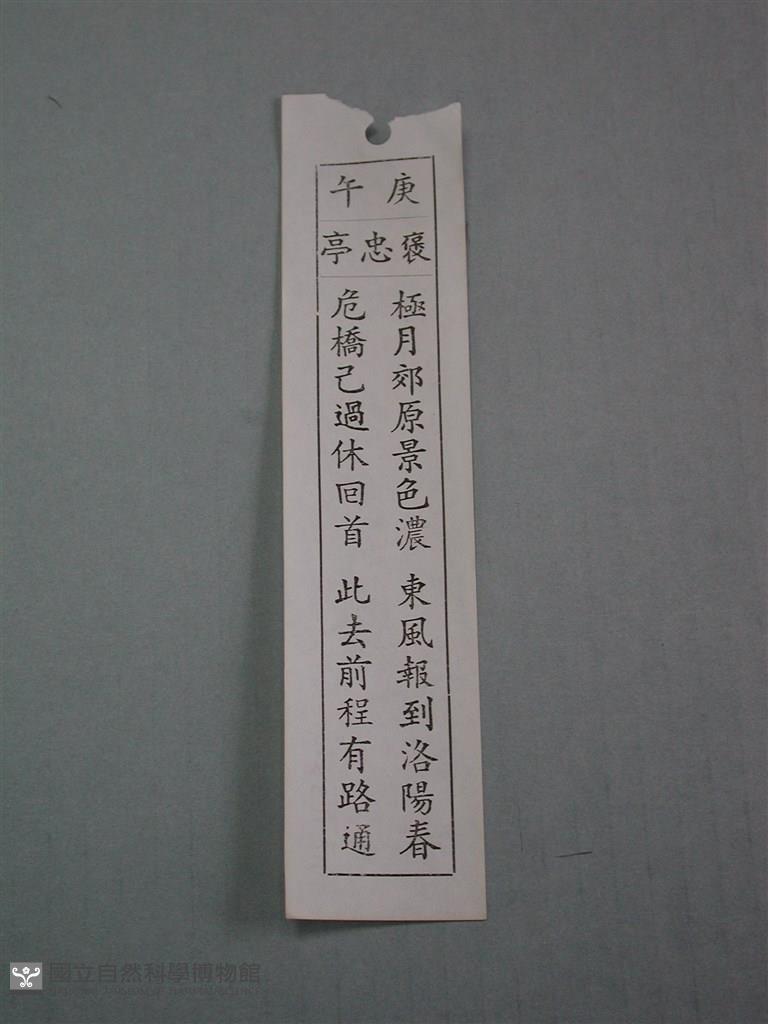 庚午
褒忠亭
極月郊原景色濃 東風報到洛陽春
危橋己過休回首 此去前程有路通
國立自然科學博物館